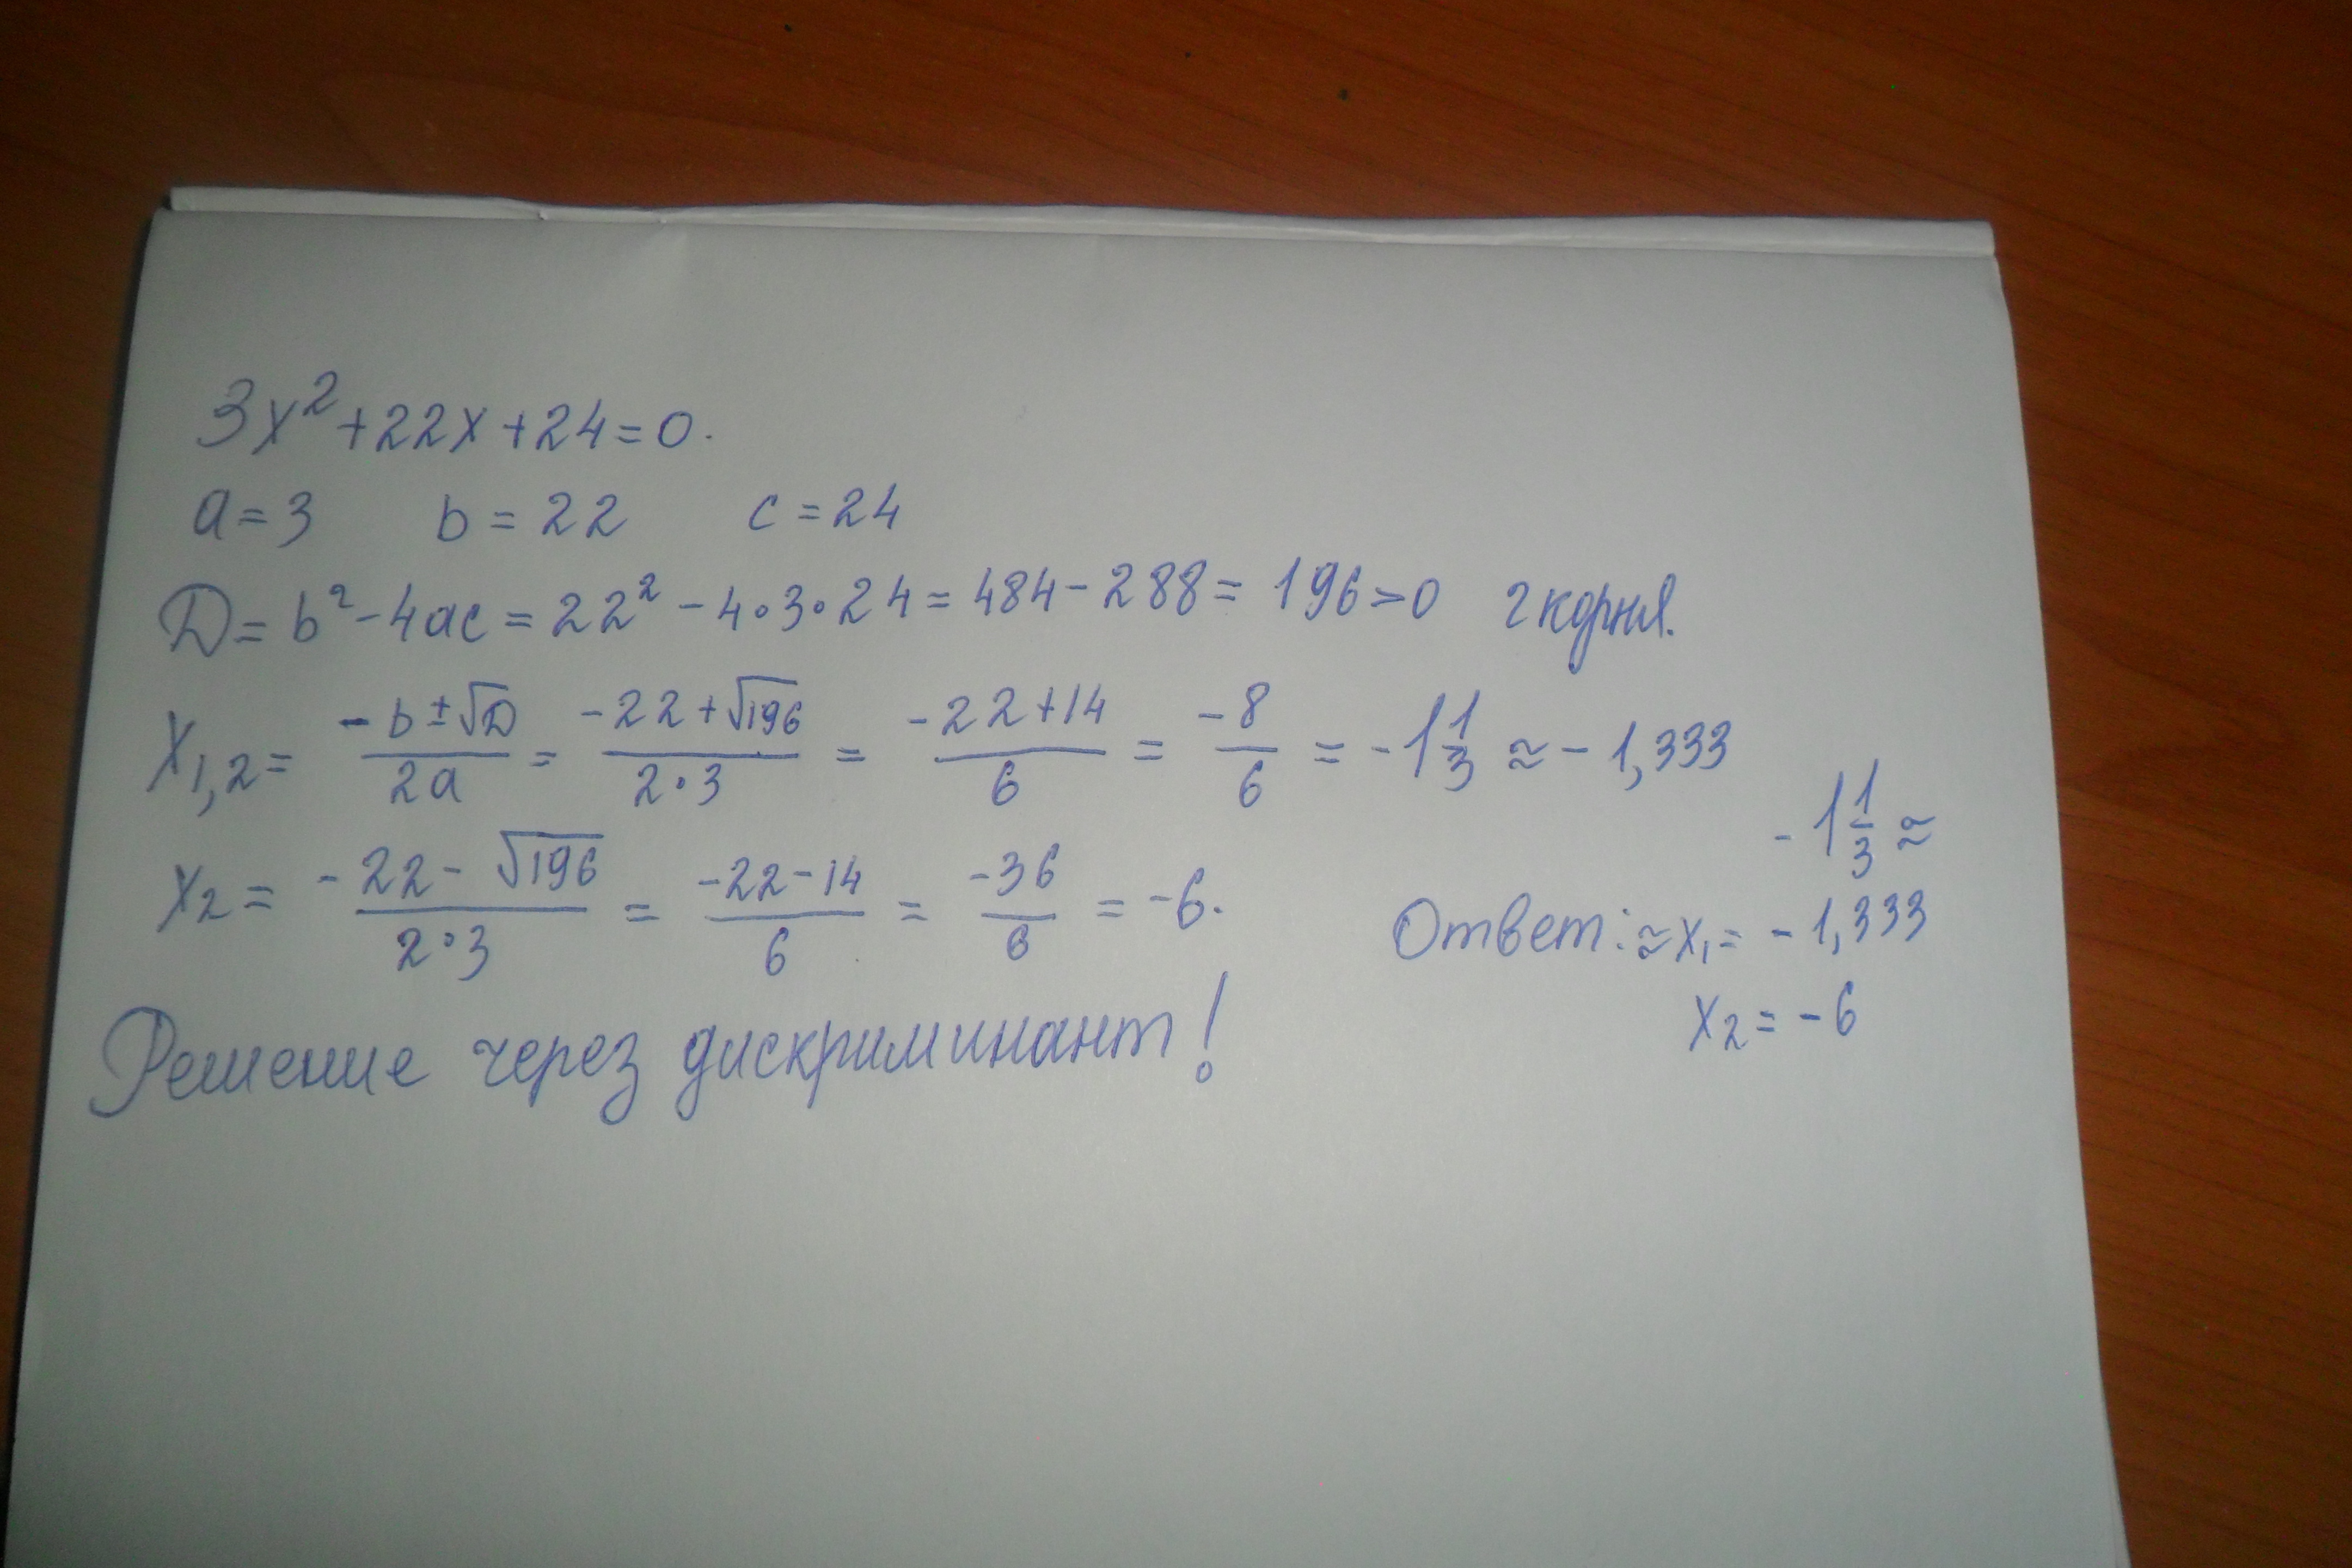 3x²+22x+24=0.
a=3 b=22 c=24
D=b²-4ac=22²-4•3•24=484-288=196>0 2 корня.
X1,2= (-b±√D)/(2a) = (-22+√196)/(2•3) = (-22+14)/6 = -8/6 = -1 1/3 ≈ -1,333
X2= (-22-√196)/(2•3) = (-22-14)/6 = -36/6 = -6.
-1 1/3 ≈
Ответ: ≈ x1= -1,333
x2= -6
Решение через дискриминант!